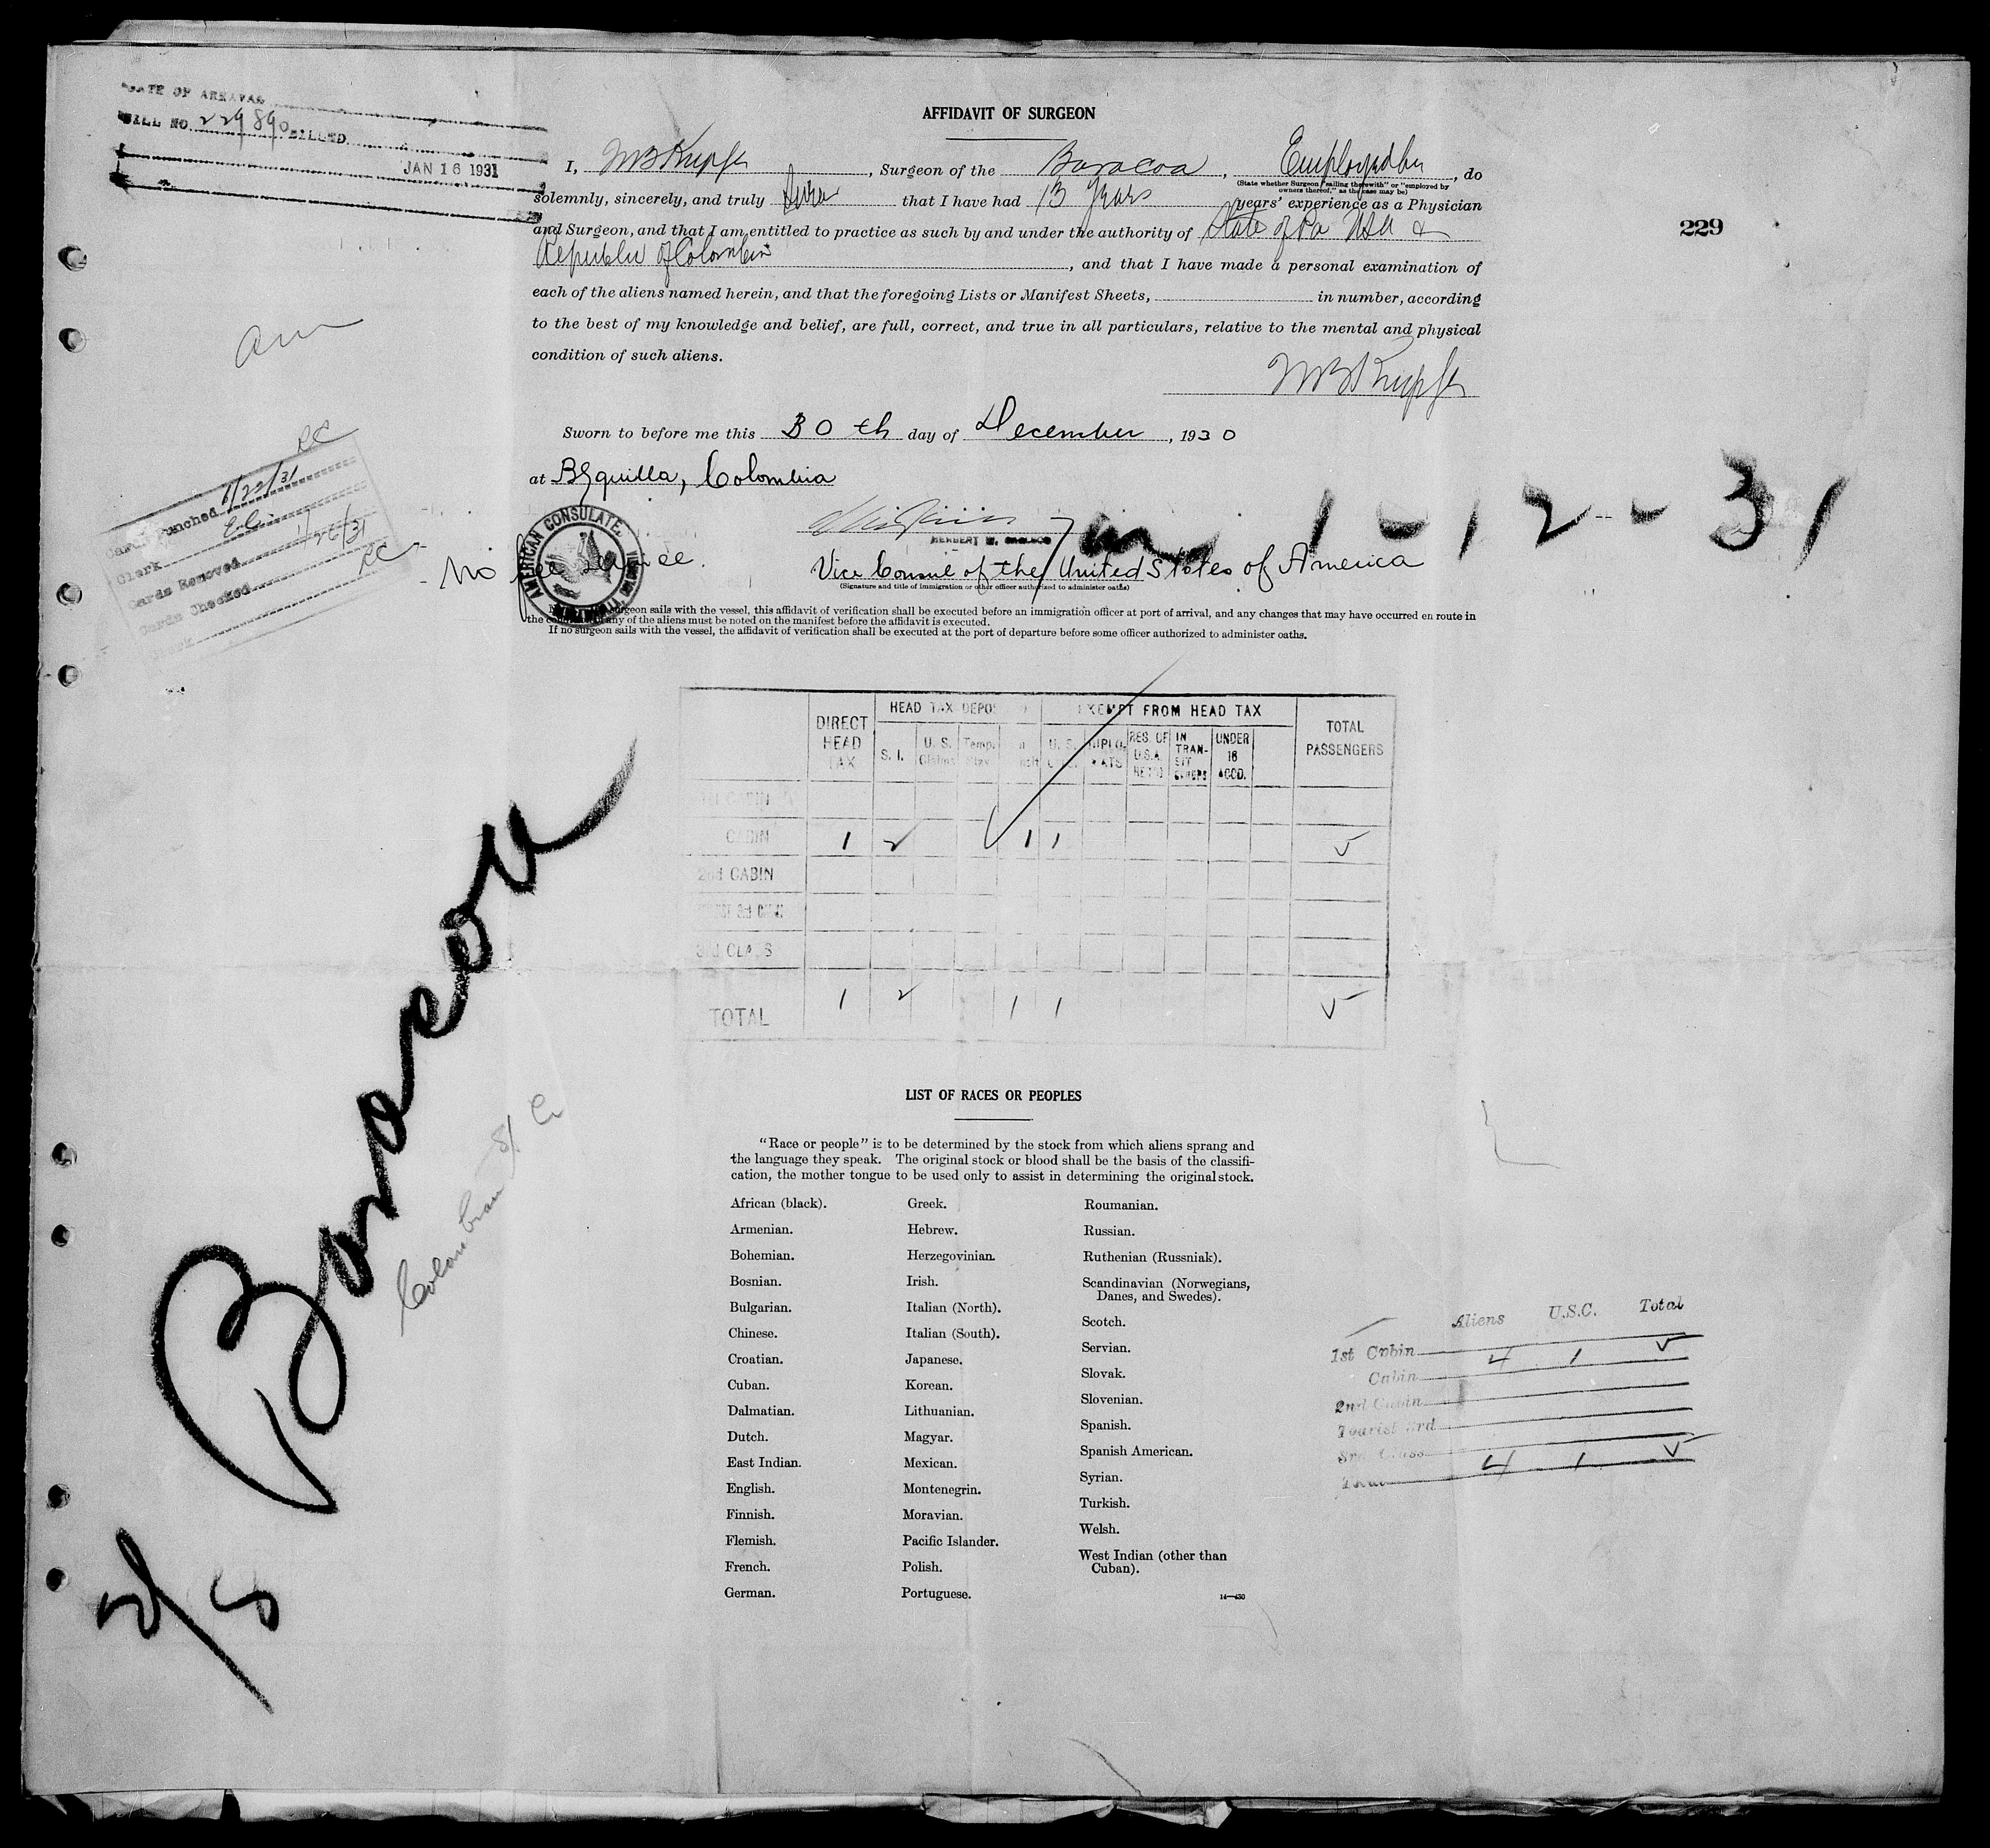 DATE OF ARRIVAL
BILL NO. 229890 BILLED
JAN 16 1931
229
AFFIDAVIT OF SURGEON
I, , Surgeon of the Baracoa, Employed by, do
(State whether Surgeon "sailing therewith" or "employed by
owners thereof," as the case may be)
solemnly, sincerely, and truly that I have had 13 years years' experience as a Physician
and Surgeon, and that I am entitled to practice as such by and under the authority of State of Pa USA &
Republic of Colombia, and that I have made a personal examination of
each of the aliens named herein, and that the foregoing Lists or Manifest Sheets, in number, according
to the best of my knowledge and belief, are full, correct, and true in all particulars, relative to the mental and physical
condition of such aliens.
Sworn to before me this 30th day of December, 1930
at B/quilla, Colombia
1-12-31
AMERICAN CONSULATE
No fee service.
Vice Consul of the United States of America
(Signature and title of immigration or other officer authorized to administer oaths)
surgeon sails with the vessel, this affidavit of verification shall be executed before an immigration officer at port of arrival, and any changes that may have occurred en route in
the any of the aliens must be noted on the manifest before the affidavit is executed.
If no surgeon sails with the vessel, the affidavit of verification shall be executed at the port of departure before some officer authorized to administer oaths.
RC
Punched 1/22/31
Clerk
Cards Removed 1/26/31
Cards Checked RC
DIRECT HEAD TAX
HEAD TAX DEPO
EXEMPT FROM HEAD TAX
TOTAL PASSENGERS
S. I. U. S. Claims Temp. Stay U. S. DIPLOMATS RES. OF U.S.A. IN TRANSIT UNDER 16 ACCD.
CABIN
CABIN 1 2 1 1 5
2nd CABIN
3rd CLASS
TOTAL 1 2 1 1 5
Baracoa
Colombian S/ Co
2/5
LIST OF RACES OR PEOPLES
"Race or people" is to be determined by the stock from which aliens sprang and
the language they speak. The original stock or blood shall be the basis of the classifi-
cation, the mother tongue to be used only to assist in determining the original stock.
African (black).
Armenian.
Bohemian.
Bosnian.
Bulgarian.
Chinese.
Croatian.
Cuban.
Dalmatian.
Dutch.
East Indian.
English.
Finnish.
Flemish.
French.
German.
Greek.
Hebrew.
Herzegovinian.
Irish.
Italian (North).
Italian (South).
Japanese.
Korean.
Lithuanian.
Magyar.
Mexican.
Montenegrin.
Moravian.
Pacific Islander.
Polish.
Portuguese.
Roumanian.
Russian.
Ruthenian (Russniak).
Scandinavian (Norwegians,
Danes, and Swedes).
Scotch.
Servian.
Slovak.
Slovenian.
Spanish.
Spanish American.
Syrian.
Turkish.
Welsh.
West Indian (other than
Cuban).
14—430
Aliens U.S.C. Total
1st Cabin 4 1 5
Cabin
2nd Cabin
Tourist 3rd
3rd Class
Total 4 1 5